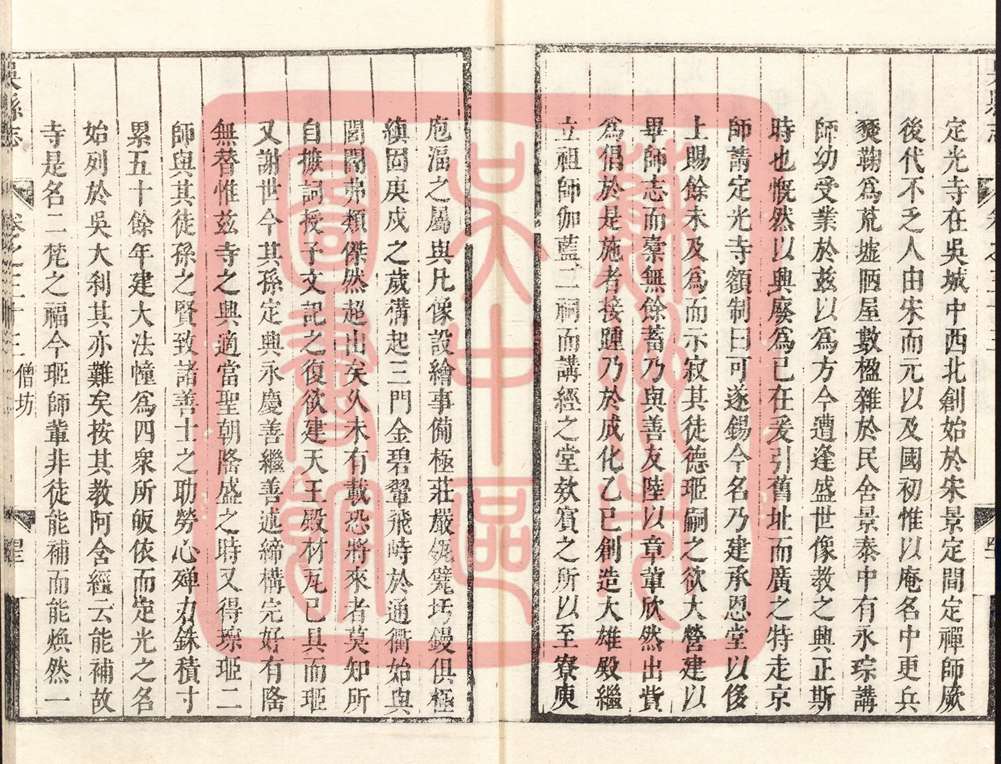 定光寺在吳城中西北創始於宋景定間定禪師厥
後代不乏人由宋而元以及國初惟以庵名中更兵
燹鞠為荒墟陋屋數楹雜於民舍景泰中有永琮講
師幼受業於茲以為方今遭逢盛世像教之興正斯
時也慨然以興廢為己任爰引舊址而廣之特走京
師請定光寺額制曰可遂錫今名乃建承恩堂以侈
上賜餘未及為而示寂其徒德瑘嗣之欲大營建以
畢師志而橐無餘蓄乃與善友陸以章輩欣然出貲
為倡於是施者接踵乃於成化乙巳創造大雄殿繼
立祖師伽藍二祠而講經之堂欸賓之所以至寮庾
庖湢之屬與凡像設繪事備極莊嚴瓴甓圬鏝俱極
縝固庚戌之歲溝起三門金碧翬飛峙於通衢始與
闤闠弗類傑然超出矣久未有載恐將來者莫知所
自據詞授予文記之復欲建天王殿材瓦已具而瑘
又謝世今其孫定興永慶善繼善述締構完好有隆
無替惟茲寺之興適當聖朝隆盛之時又得琮瑘二
師與其徒孫之賢致諸善士之助勞心殫力銖積寸
累五十餘年建大法幢為四衆所皈依而定光之名
始列於吳大刹其亦難矣按其教阿含經云能補故
寺是名二梵之福今瑘師輩非徒能補而能煥然一
吳縣志
卷之二十三 僧坊
蘇州市
吳中區
圖書館